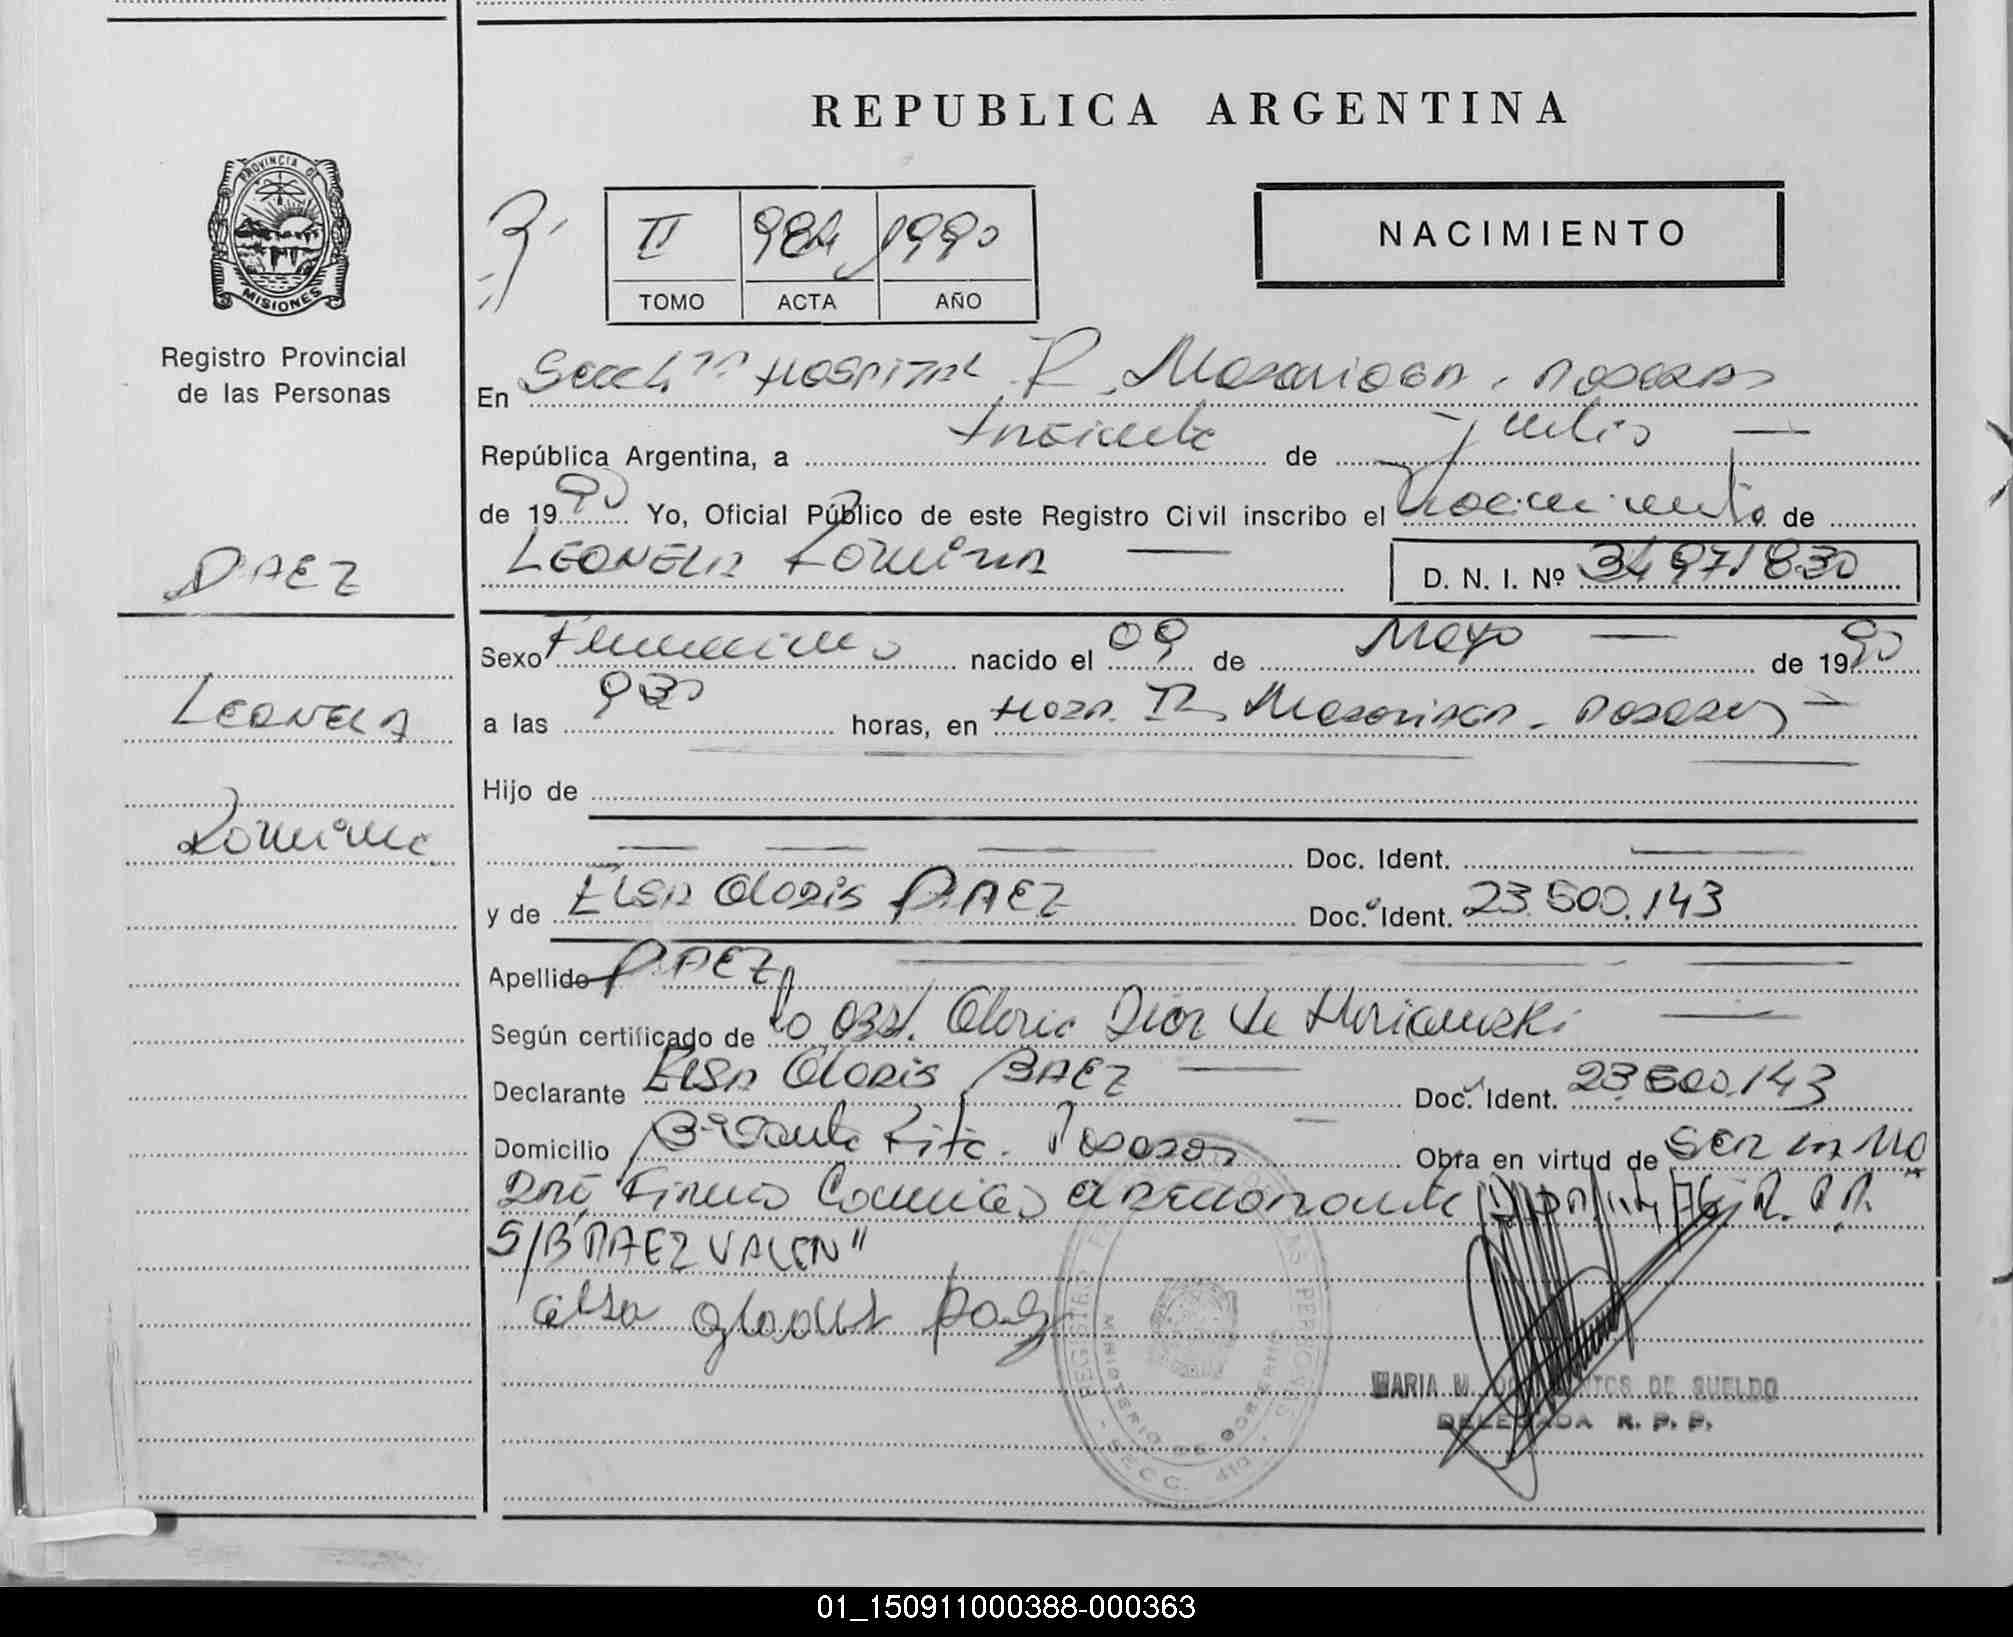 REPUBLICA ARGENTINA
PROVINCIA DE
MISIONES
Registro Provincial
de las Personas
II 984 1990
TOMO ACTA AÑO
NACIMIENTO
En Secc. Hospital R. Madariaga - Posadas
República Argentina, a treinta de Julio —
de 1990 Yo, Oficial Público de este Registro Civil inscribo el nacimiento de
LEONELA Romina — D. N. I. Nº 34971830
PAEZ
LEONELA
Romina
Sexo Femenino nacido el 09 de Mayo — de 1990
a las 930 horas, en Hosp. R. Madariaga - Posadas —
Hijo de
Doc. Ident.
y de Elsa Gladis PAEZ Doc. Ident. 23.500.143
Apellido PAEZ
Según certificado de la Obst. Gloria Dior de
Declarante Elsa Gladis BAEZ — Doc. Ident. 23.500.143
Domicilio Bº Santa Rita - Posadas — Obra en virtud de SER LA MA
DRE, Firma Conmigo R.P.P.
S/B "PAEZ VALEN"
elsa gladis paez
MINISTERIO DE GOBIERNO
MARIA M. DE SUELDO
DELEGADA R. P. P.
01_150911000388-000363